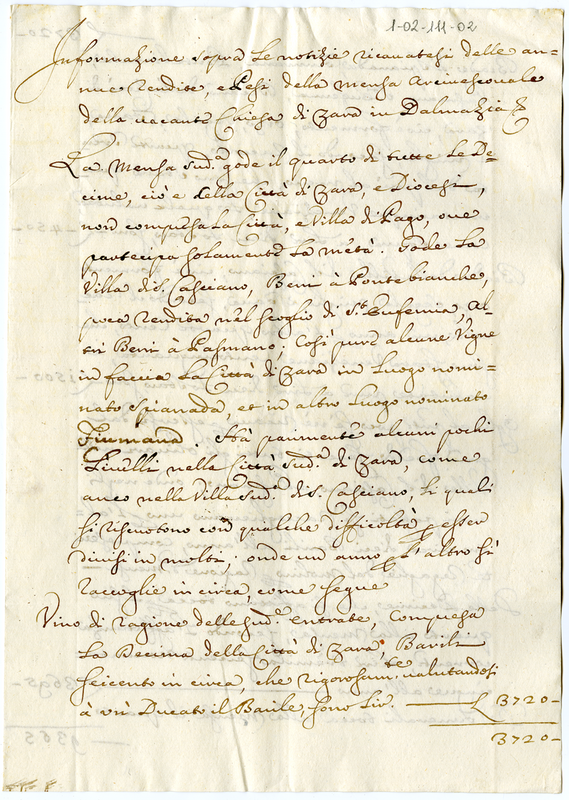 1-02-111-02
Informazione sopra le notizie ricavatesi delle an=
nue rendite, e Pesi della Mensa Arcivescovale
della vacante Chiesa di Zara in Dalmazia
La Mensa sud.a gode il quarto di tutte le De=
cime, ciò è della Città di Zara, e Diocesi,
non compresa la Città, e Villa di Pago, ove
partecipa solamente la metà. Gode la
Villa di S. Casciano, Beni à Pontebianche,
poca rendita nel scoglio di S.ta Eufemia, Al=
tri Beni à Pasmano; Così pure alcune Vigne
in faccia la Città di Zara in luogo nomi=
nato Spianada, et in altro luogo nominato
Fiumana. Hà parimente alcuni pochi
Livelli nella Città sud.a di Zara, come
anco nella Villa sud.a di S. Casciano, li quali
si riscuotono con qualche difficoltà p esser
divisi in molti, onde un anno p l'altro si
raccoglie in circa, come segue
Vino di ragione delle sud.e entrate, compresa
la Decima della Città di Zara, Barili
seicento in circa, che rigorosam.te valutandosi
à un Ducato il Barile, sono Lir. — L 3720-
3720-